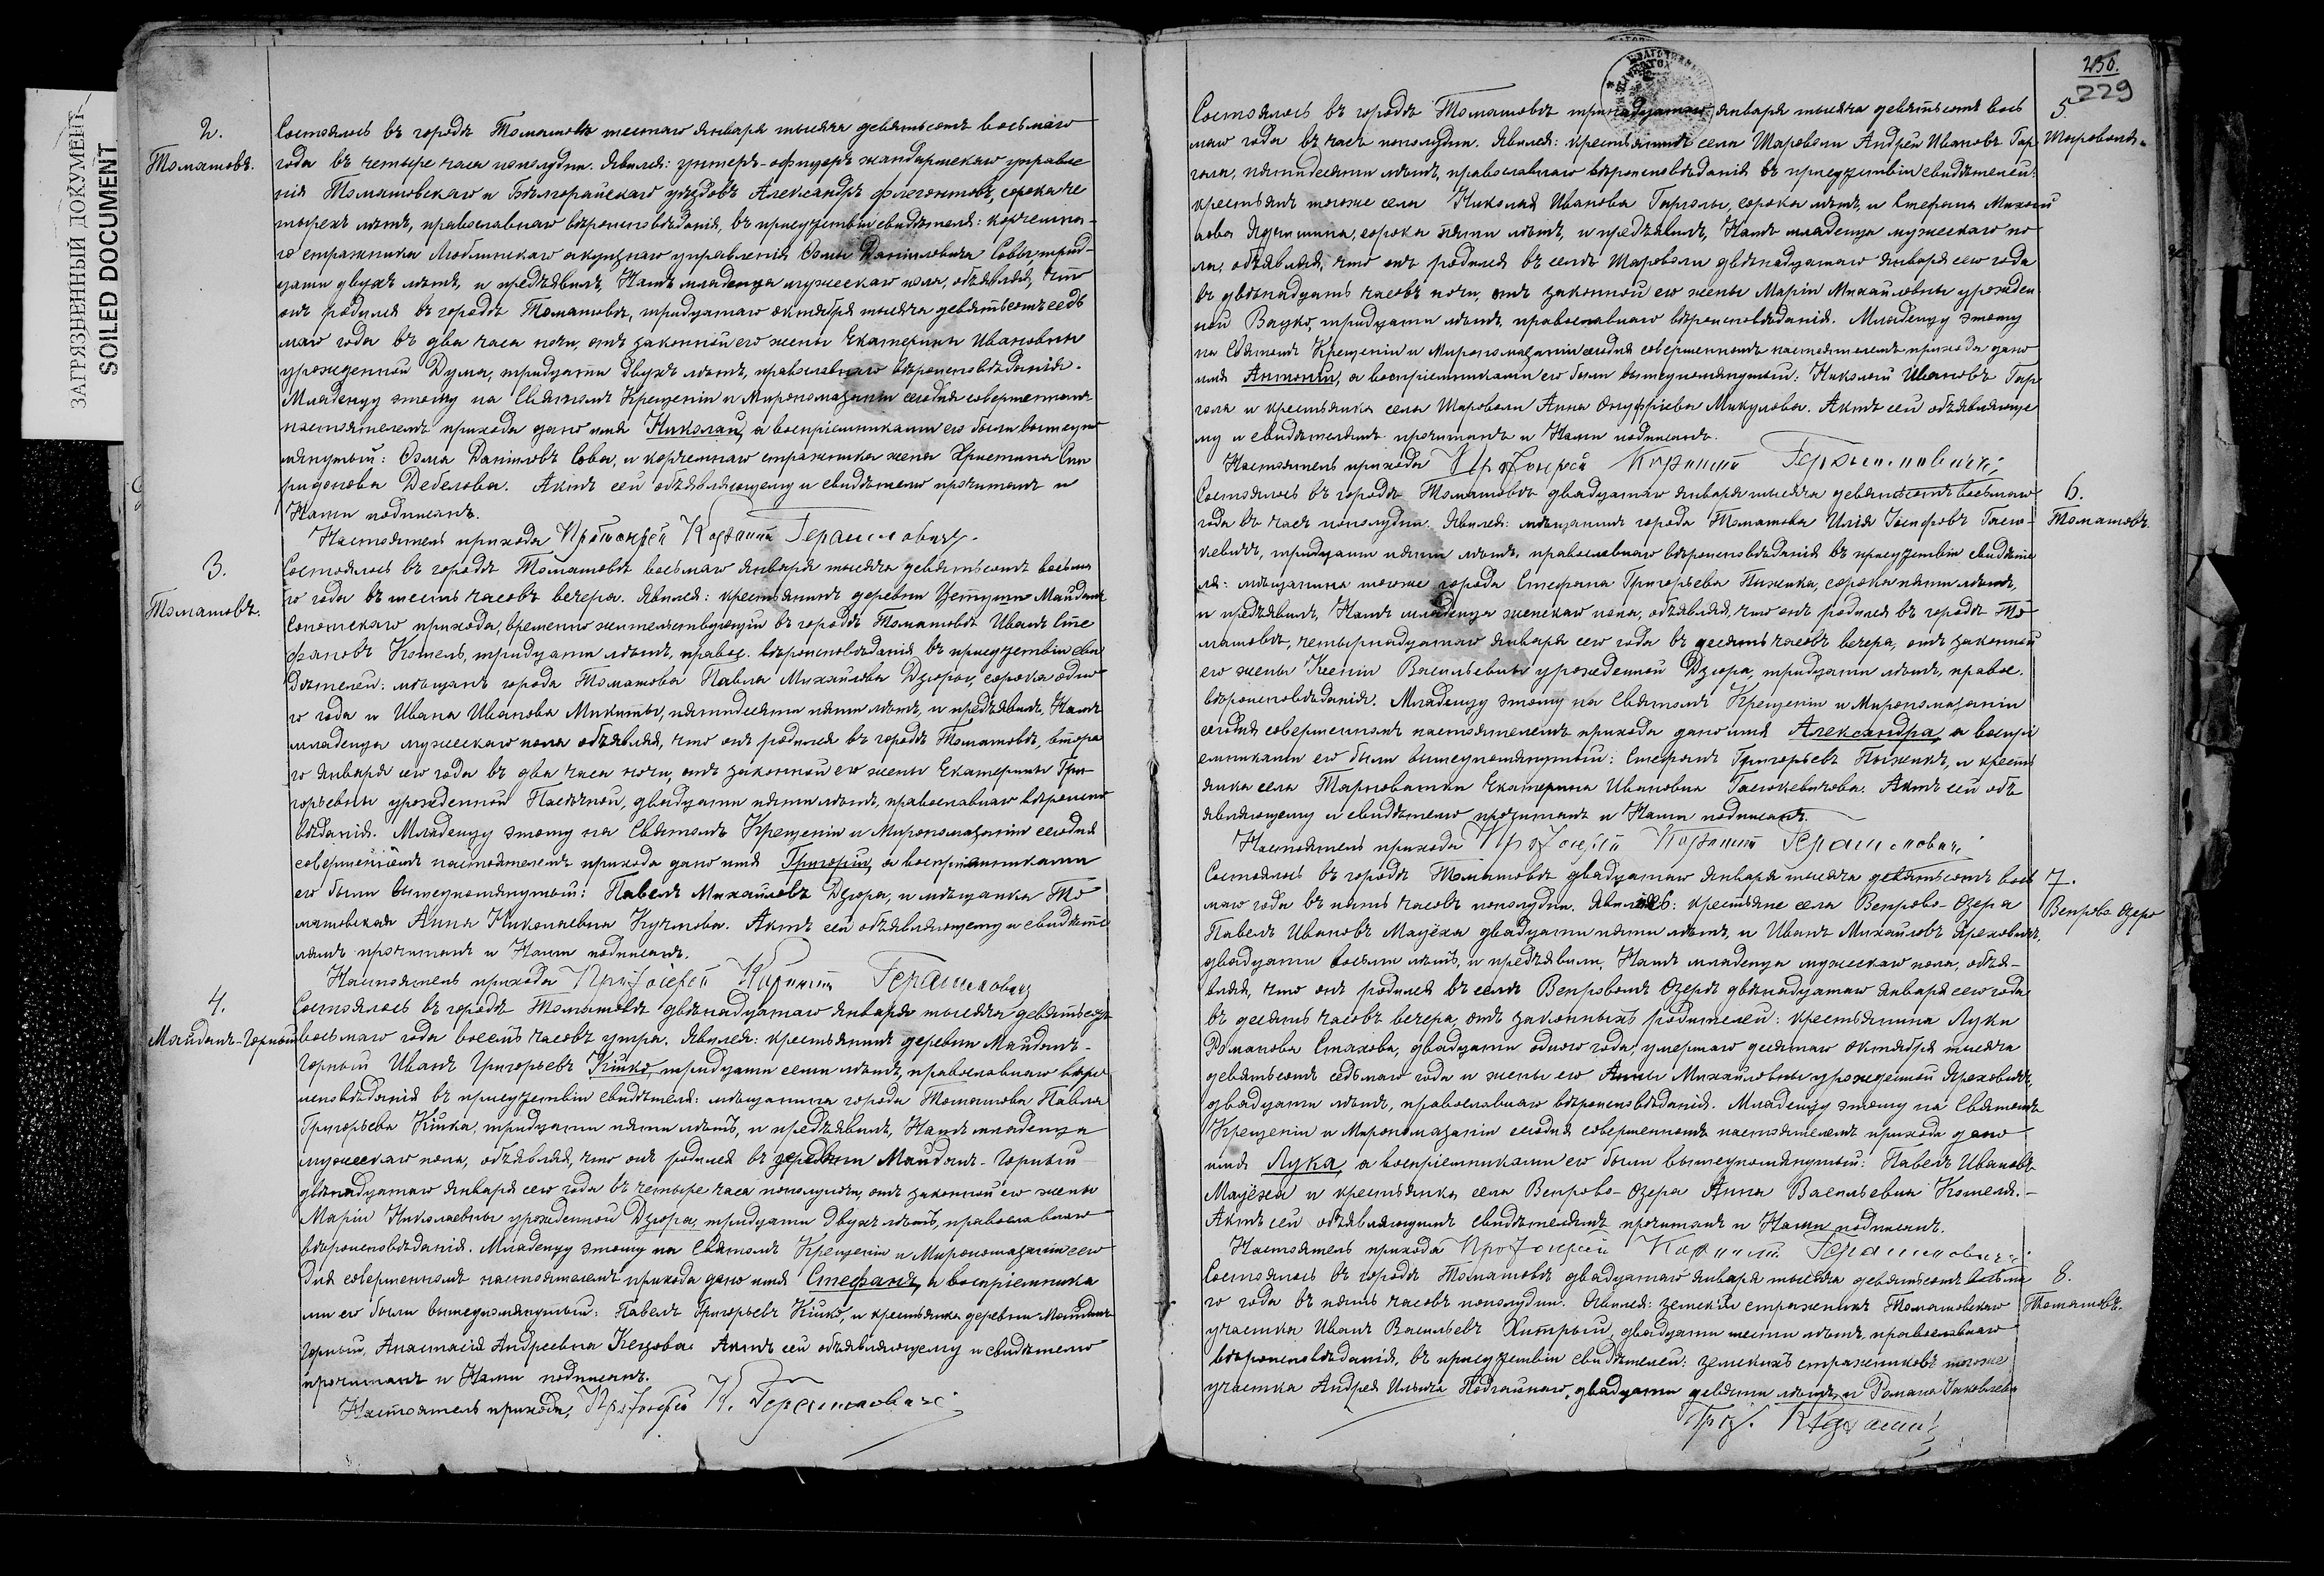 ЗАГРЯЗНЕННЫЙ ДОКУМЕНТ
SOILED DOCUMENT
2.
Томашовъ.
Состоялось въ городѣ Томашовѣ шестаго Января тысяча девятьсотъ восьмаго
года въ четыре часа пополудни. Явился: унтеръ-офицеръ жандармскаго управле
нія Томашовскаго и Бѣлгорайскаго уѣздовъ Александръ Флегонтовъ, сорока че
тырехъ лѣтъ, православнаго вѣроисповѣданія, въ присутствіи свидѣтеля: корчемна-
го стражника Люблинскаго акцизнаго управленія Ѳомы Даниловича Совы, трид-
цати двухъ лѣтъ, и предъявилъ Намъ младенца мужескаго пола, объявляя, что
онъ родился въ городѣ Томашовѣ, тридцатаго октября тысяча девятьсотъ седь
маго года въ два часа ночи, отъ законной его жены Екатерины Ивановны
урожденной Дума, тридцати двухъ лѣтъ, православнаго вѣроисповѣданія.
Младенцу этому на Святомъ Крещеніи и Миропомазаніи сегодня совершенномъ
настоятелемъ прихода дано имя Николай, а воспріемниками его были вышеупо
мянутый: Ѳома Даниловъ Сова, и корчемнаго стражника жена Христина Спи
ридонова Дебелова. Актъ сей объявляющему и свидѣтелю прочитанъ и
Нами подписанъ.
Настоятель прихода Протоіерей Корнилій Герасимовичъ.
3.
Томашовъ.
Состоялось въ городѣ Томашовѣ восьмаго Января тысяча девятьсотъ восьма
го года въ шесть часовъ вечера. Явился: крестьянинъ деревни Майдана
Сопотскаго прихода, временно жительствующій въ городѣ Томашовѣ Иванъ Сте
фановъ Комель, тридцати лѣтъ, правос. вѣроисповѣданія въ присутствіи сви
дѣтелей: мѣщанъ города Томашова Павла Михайлова Дзюры, сорока одно
го года и Ивана Иванова Микиты, пятидесяти пяти лѣтъ, и предъявилъ, Намъ
младенца мужескаго пола объявляя, что онъ родился въ городѣ Томашовѣ, втора
го Января сего года въ два часа ночи, отъ законной его жены Екатерины Гри-
горьевны урожденной Пасѣчной, двадцати пяти лѣтъ, православнаго вѣроиспо
вѣданія. Младенцу этому на Святомъ Крещеніи и Миропомазаніи сегодня
совершенномъ настоятелемъ прихода дано имя Григорій, а воспріемниками
его были вышеупомянутый: Павелъ Михайловъ Дзюра, и мѣщанка То
машовская Анна Николаевна Кучмова. Актъ сей объявляющему и свидѣте
лямъ прочитанъ и Нами подписанъ.
Настоятель прихода Протоіерей Корнилій Герасимовичъ
4.
Майданъ-Горный
Состоялось въ городѣ Томашовѣ двѣнадцатаго Января тысяча девятьсотъ
восьмаго года восемь часовъ утра. Явился: крестьянинъ деревни Майданъ-
Горный Иванъ Григорьевъ Кицко, тридцати семи лѣтъ, православнаго вѣро
исповѣданія въ присутствіи свидѣтеля: мѣщанина города Томашова Павла
Григорьева Кицка, тридцати пяти лѣтъ, и предъявилъ, Намъ младенца
мужескаго пола, объявляя, что онъ родился въ деревни Майданъ-Горный
двѣнадцатаго Января сего года въ четыре часа пополуночи, отъ законной его жены
Маріи Николаевны урожденной Дзюра, тридцати двухъ лѣтъ, православнаго
вѣроисповѣданія. Младенцу этому на Святомъ Крещеніи и Миропомазаніи сего
дня совершенномъ настоятелемъ прихода дано имя Стефанъ, а воспріемника
ми его были вышеупомянутый: Павелъ Григорьевъ Кицко, и крестьянка деревни Майданъ
Горный, Анастасія Андреевна Кецова. Актъ сей объявляющему и свидѣтелю
прочитанъ и Нами подписанъ.
Настоятель прихода, Протоіерей К. Герасимовичъ
236.
229
5.
Шаровола.
Состоялось въ городѣ Томашовѣ тринадцатаго Января тысяча девятьсотъ вось
маго года въ часъ пополудни. Явился: крестьянинъ села Шароволи Андрей Ивановъ Гар
гола, пятидесяти лѣтъ, православнаго вѣроисповѣданія въ присутствіи свидѣтелей:
крестьянъ тогоже села Николая Иванова Гарголы, сорока лѣтъ, и Стефана Михай
лова, сорока пяти лѣтъ, и предъявилъ, Намъ младенца мужескаго по
ла, объявляя, что онъ родился въ селѣ Шароволи двѣнадцатаго Января сего года
въ двѣнадцать часовъ ночи, отъ законной его жены Маріи Михайловны урожден-
ной Вацко, тридцати лѣтъ, православнаго вѣроисповѣданія. Младенцу этому
на Святомъ Крещеніи и Миропомазаніи сегодня совершенномъ настоятелемъ прихода дано
имя Антоній, а воспріемниками его были вышеупомянутый: Николай Ивановъ Гар
гола и крестьянка села Шароволи Анна Онуфріева Микулова. Актъ сей объявляюще
му и свидѣтелямъ прочитанъ и Нами подписанъ.
Настоятель прихода Протоіерей Корнилій Герасимовичъ
6.
Томашовъ.
Состоялось въ городѣ Томашовѣ двадцатаго Января тысяча девятьсотъ восьмаго
года въ часъ пополудни. Явился: мѣщанинъ города Томашова Илія Іосифовъ Гасю-
кевичъ, тридцати пяти лѣтъ, православнаго вѣроисповѣданія въ присутствіи свидѣте
ля: мѣщанина тогоже города Стефана Григорьева Пыжика, сорока пяти лѣтъ,
и предъявилъ, Намъ младенца женскаго пола, объявляя, что онъ родился въ городѣ То
машовѣ, четырнадцатаго Января сего года въ десять часовъ вечера, отъ законной
его жены Ксеніи Васильевны урожденной Дзюра, тридцати лѣтъ, правос.
вѣроисповѣданія. Младенцу этому на Святомъ Крещеніи и Миропомазаніи
сегодня совершенномъ настоятелемъ прихода дано имя Александра, а воспрі
емниками его были вышеупомянутый: Стефанъ Григорьевъ Пыжикъ, и кресть
янка села Тарноватки Екатерина Ивановна Гасюкевичова. Актъ сей объ
являющему и свидѣтелю прочитанъ и Нами подписанъ.
Настоятель прихода Протоіерей Корнилій Герасимовичъ
7.
Вепрово-Озеро
Состоялось въ городѣ Томашовѣ двадцатаго Января тысяча девятьсотъ вось
маго года въ пять часовъ пополудни. Явились: крестьяне села Вепрово-Озера
Павелъ Ивановъ Маціоха двадцати пяти лѣтъ, и Иванъ Михайловъ Яроховичъ,
двадцати восьми лѣтъ, и предъявили, Намъ младенца мужескаго пола, объя-
вляя, что онъ родился въ селѣ Вепровомъ Озерѣ двѣнадцатаго Января сего года
въ десять часовъ вечера, отъ законныхъ родителей: крестьянина Луки
Романова Стахова, двадцати одного года, умершаго десятаго октября тысяча
девятьсотъ седьмаго года и жены его Анны Михайловны урожденной Яроховичъ,
двадцати лѣтъ, православнаго вѣроисповѣданія. Младенцу этому на Святомъ
Крещеніи и Миропомазаніи сегодня совершенномъ настоятелемъ прихода дано
имя Лука, а воспріемниками его были вышеупомянутый: Павелъ Ивановъ
Маціоха и крестьянка села Вепрово-Озера Анна Васильевна Комеля.-
Актъ сей объявляющимъ свидѣтелямъ прочитанъ и Нами подписанъ.
Настоятель прихода Протоіерей Корнилій Герасимовичъ
8.
Томашовъ.
Состоялось въ городѣ Томашовѣ двадцатаго Января тысяча девятьсотъ восьма
го года въ пять часовъ пополудни. Явился: земскій стражникъ Томашовскаго
участка Иванъ Васильевъ Хитрый, двадцати шести лѣтъ, православнаго
вѣроисповѣданія, въ присутствіи свидѣтелей: земскихъ стражниковъ тогоже
участка Андрея Ильича Подгайнаго, двадцати девяти лѣтъ и Романа Яковлева